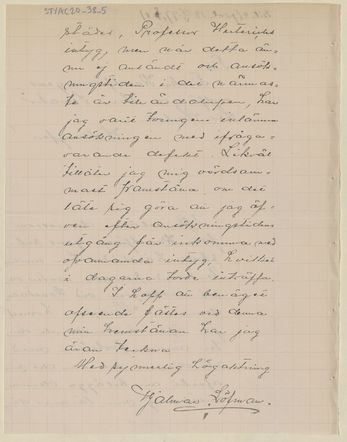 STYAC20-38-5
städes, Professor Herterichs
intyg, men när detta än-
nu ej anländt och ansök-
ningstiden i det närmas-
te är tilländalupen, har
jag varit tvungen inlämna
ansökningen med ifråga-
varande defekt. Likväl
tillåter jag mig vördsam-
mast framställa om det
låte sig göra att jag äf-
ven efter ansökningstidens
utgång får inkomma med
ofvannämda intyg, hvilket
i dagarna torde inträffa.
I hopp att benäget
afseende fästes vid denna
min hemställan har jag
äran teckna
Med synnerlig högaktning
Hjalmar Löfman.